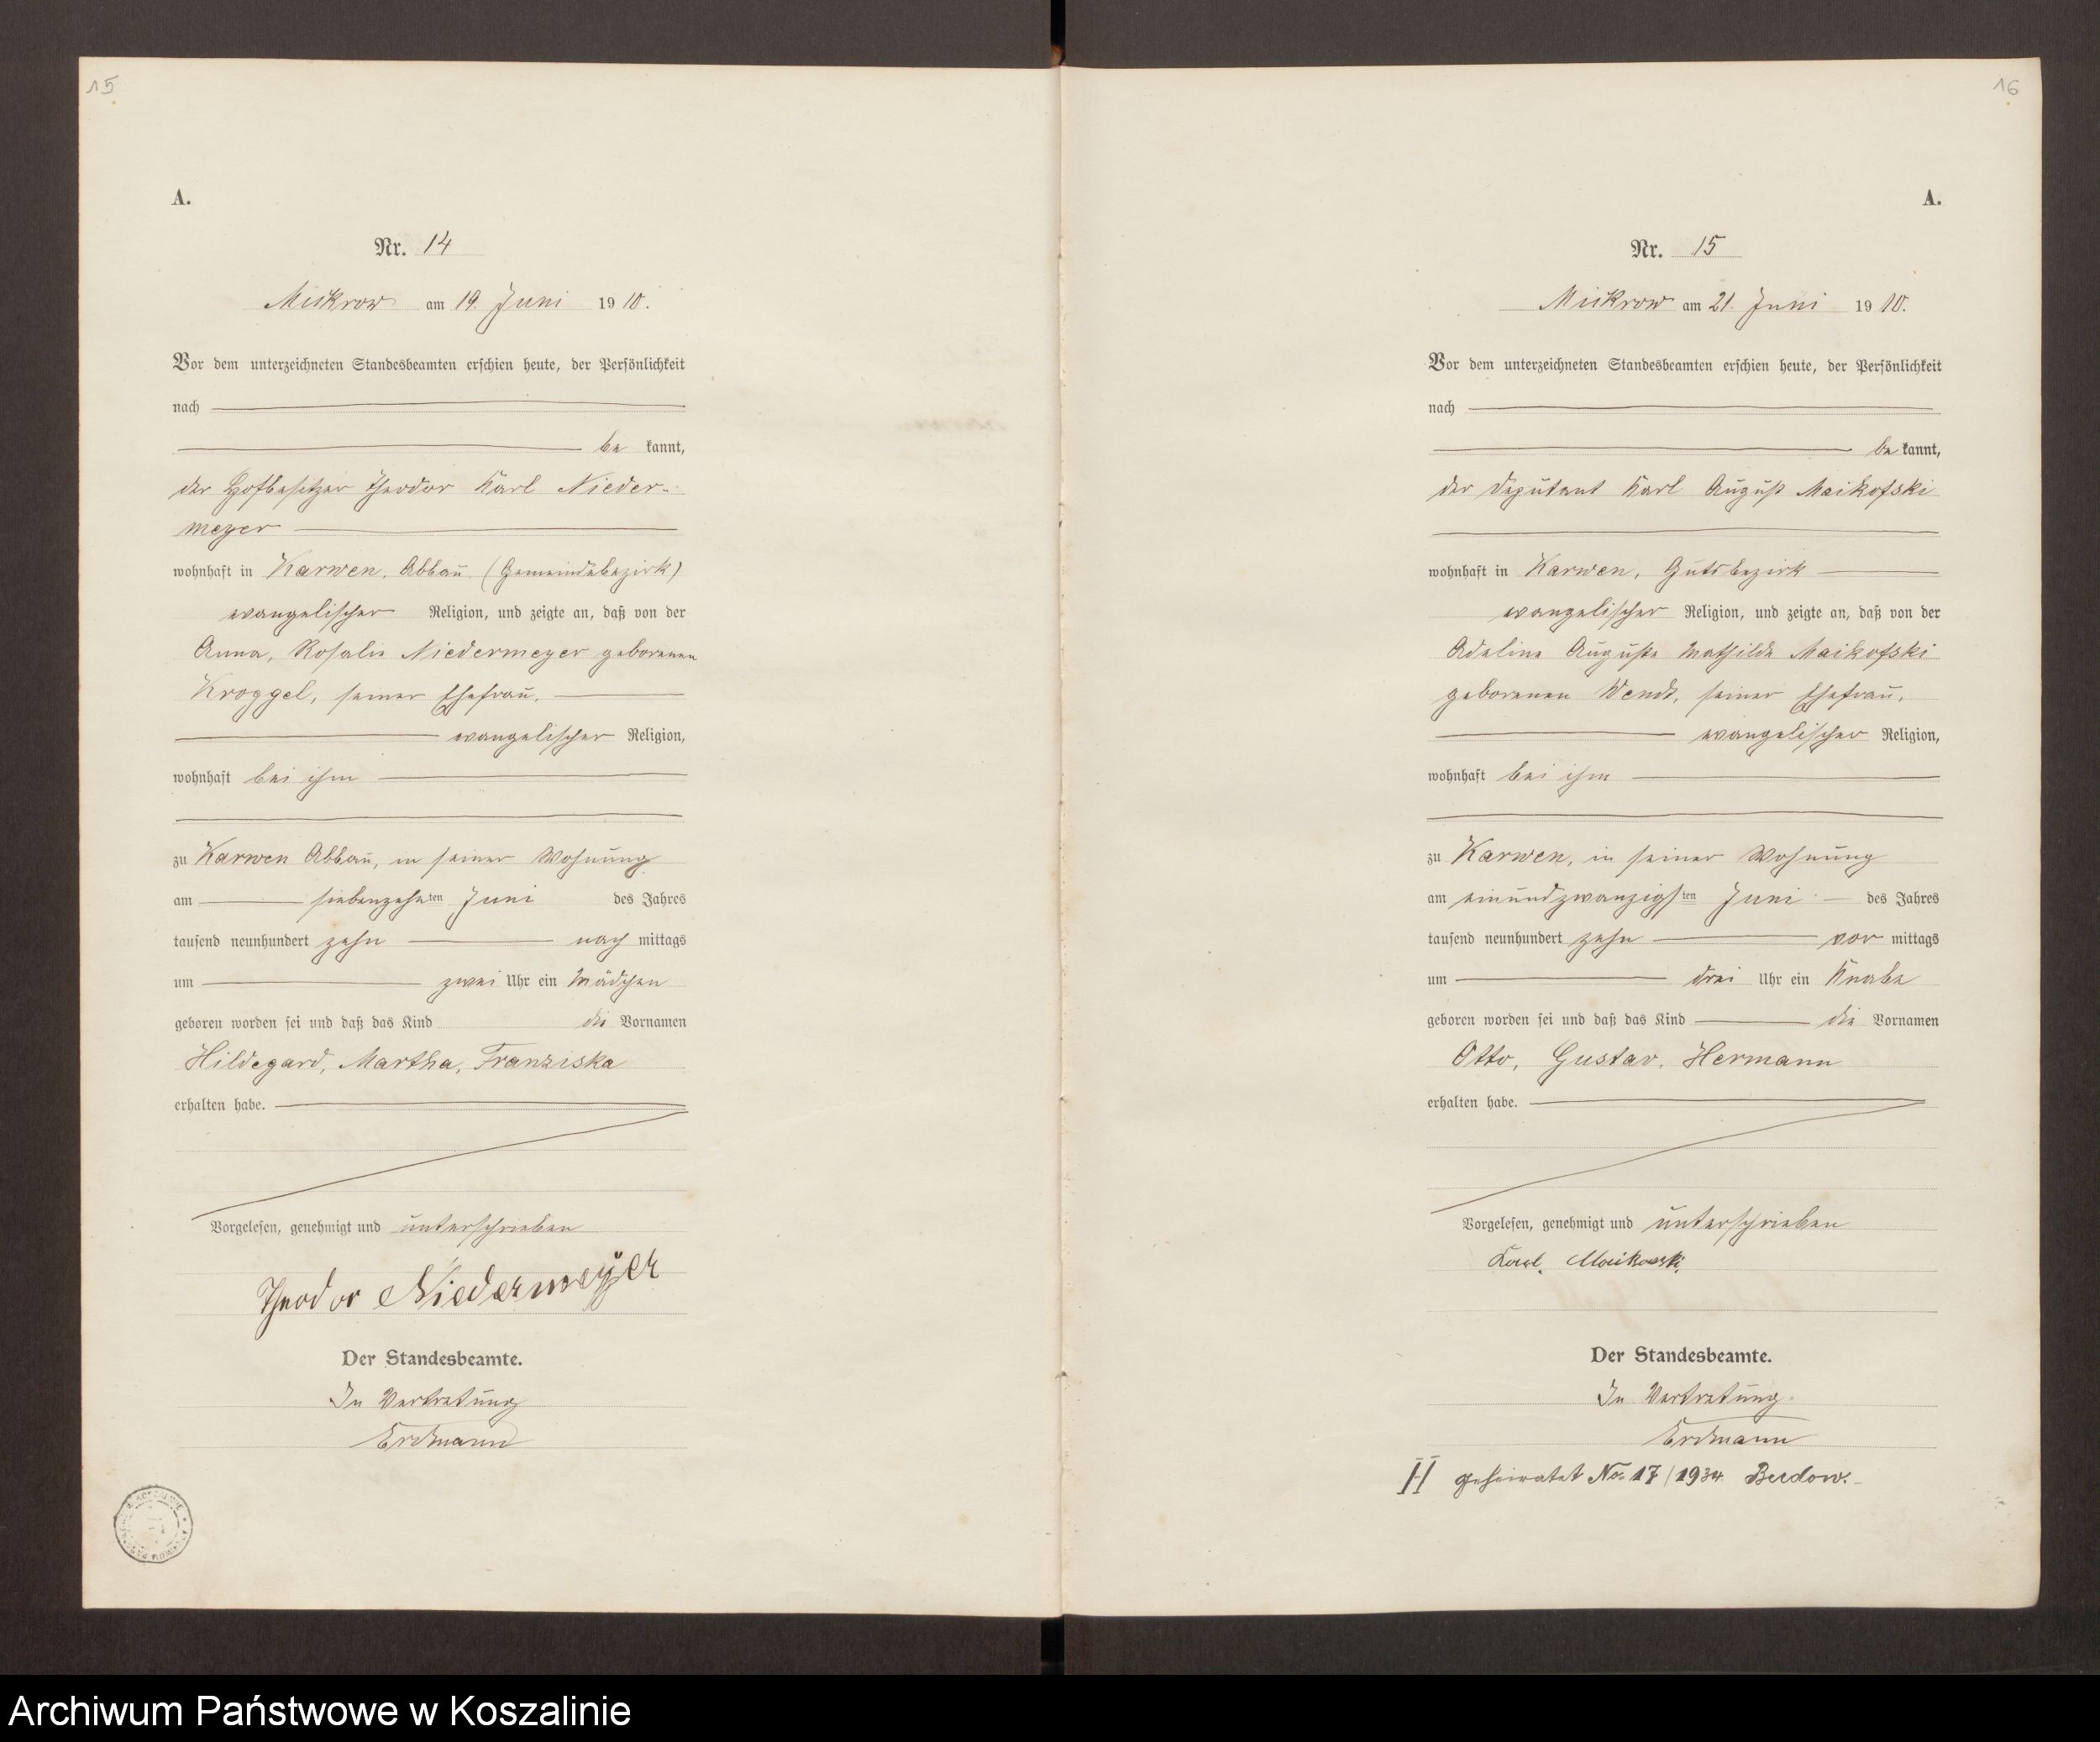 15
A.
Nr. 14
Mickrow am 19. Juni 1910.
Vor dem unterzeichneten Standesbeamten erschien heute, der Persönlichkeit
nach
be kannt,
der Hofbesitzer Theodor Karl Nieder-
meyer
wohnhaft in Karwen. Abbau (Gemeindebezirk)
evangelischer Religion, und zeigte an, daß von der
Anna, Rosalie Niedermeyer geborenen
Kroggel, seiner Ehefrau,
evangelischer Religion,
wohnhaft bei ihm
zu Karwen Abbau, in seiner Wohnung
am siebenzehnten Juni des Jahres
tausend neunhundert zehn nach mittags
um zwei Uhr ein Mädchen
geboren worden sei und daß das Kind die Vornamen
Hildegard, Martha, Franziska
erhalten habe.
Vorgelesen, genehmigt und unterschrieben
Theodor Niedermeyer
Der Standesbeamte.
In Vertretung
Erdmann
16
A.
Nr. 15
Mickrow am 21. Juni 1910.
Vor dem unterzeichneten Standesbeamten erschien heute, der Persönlichkeit
nach
be kannt,
der Deputant Karl August Maikofski
wohnhaft in Karwen, Gutsbezirk
evangelischer Religion, und zeigte an, daß von der
Adeline Auguste Mathilde Maikofski
geborenen Wendt, seiner Ehefrau,
evangelischer Religion,
wohnhaft bei ihm
zu Karwen, in seiner Wohnung
am einundzwanzigsten Juni des Jahres
tausend neunhundert zehn vor mittags
um drei Uhr ein Knabe
geboren worden sei und daß das Kind die Vornamen
Otto, Gustav, Hermann
erhalten habe.
Vorgelesen, genehmigt und unterschrieben
Karl Maikowski
Der Standesbeamte.
In Vertretung
Erdmann
H geheiratet No. 17/1934 Budow.
Archiwum Państwowe w Koszalinie